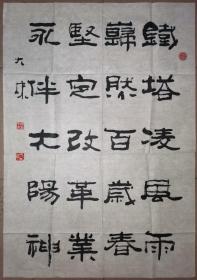 鐵塔凌風雨
巋然百歲春
堅定改革業
永伴太陽神
大味